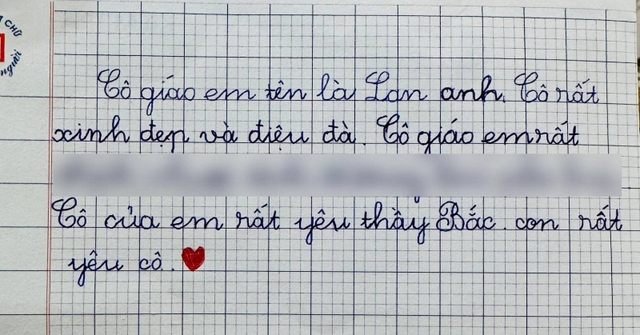 CHỮ
người
Cô giáo em tên là Lan anh. Cô rất
xinh đẹp và điệu đà. Cô giáo em rất
Cô của em rất yêu thầy Bắc. con rất
yêu cô.